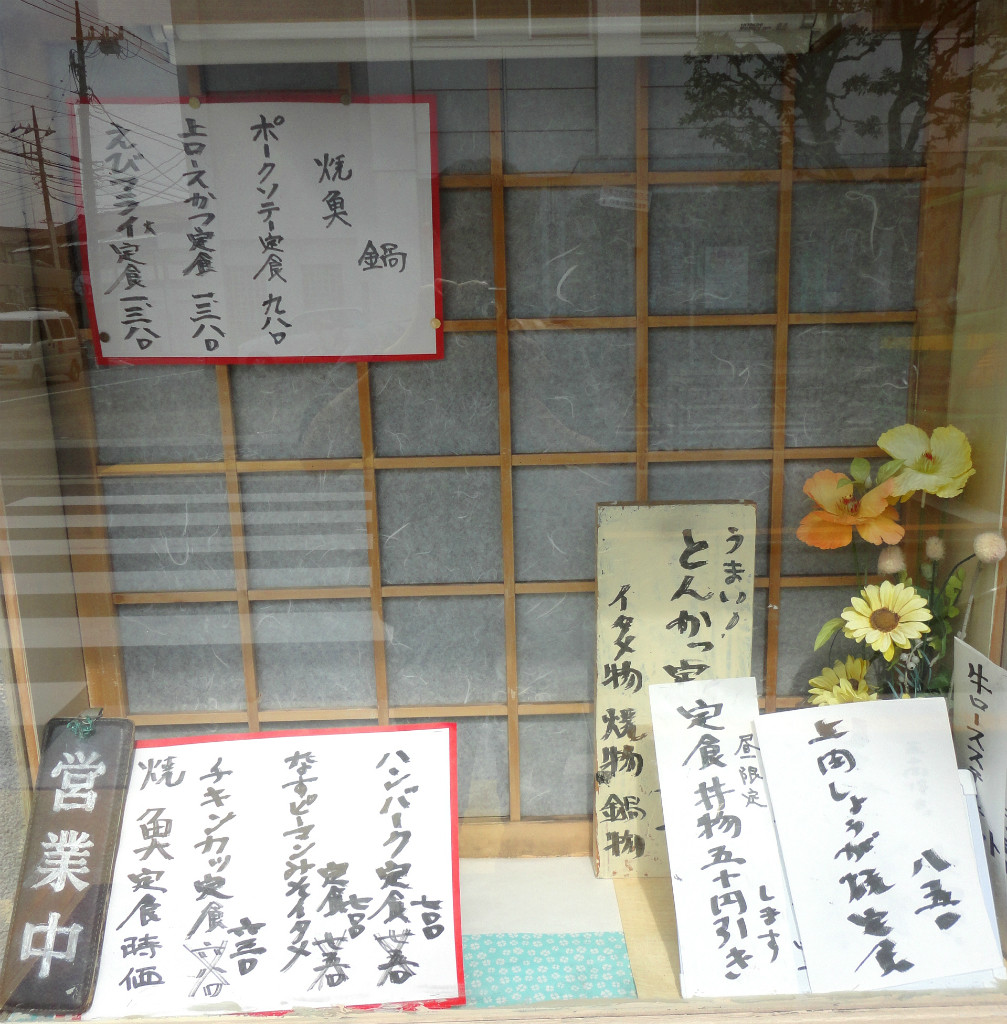 鍋
焼魚
ポークソテー定食 九八〇
上ロースかつ定食 一、三八〇
えびフライ定食 一、三八〇
うまい!
とんかつ定
イタメ物 焼物 鍋物
昼限定
定食丼物五十円引き
します
上肉しょうが焼定食
八五〇
牛ロースステ
ハンバーク定食 七〇〇
なすピーマンみそイタメ
定食 七〇〇
チキンカツ定食 六三〇
焼魚定食 時価
営業中